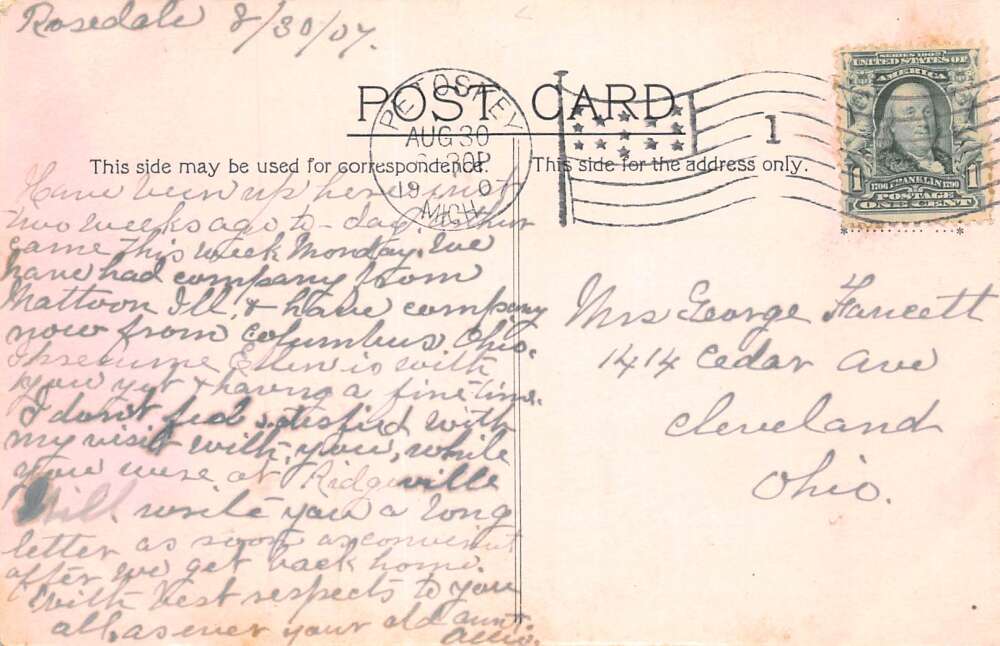 Rosedale 8/30/07.
POST CARD.
PETOSKEY
AUG 30
30P
19 0
MICH
1
SERIES 1902
UNITED STATES OF
AMERICA
1706 FRANKLIN 1790
1 1
POSTAGE
ONE CENT
This side may be used for correspondence.
This side for the address only.
Have been up here just
two weeks ago to-day.
came this week Monday. We
have had company from
Mattoon Ill, & have company
now from Columbus Ohio.
I presume Ellen is with
you yet & having a fine time.
I don't feel satisfid with
my visit with you, while
you were at Ridgeville
Will write you a long
letter as soon as convenient
after we get back home.
With best respects to you
all, as ever your old aunt.
Mrs George Faucett
1414 Cedar Ave
Cleveland
Ohio.